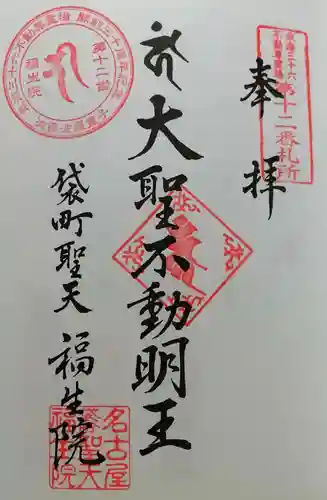 奉拝
第十二番札所
大聖不動明王
袋町聖天
福生院
第十二番
福生院
名古屋
袋聖天
福生院